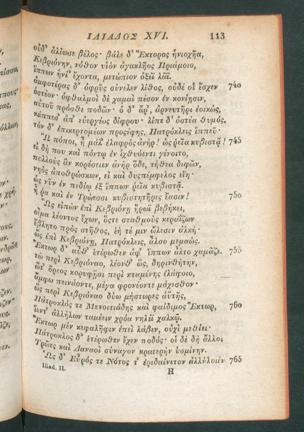 ΙΛΙΑΔΟΣ XVI. 113
οὐδ' ἁλίωσε βέλος· βάλε δ' Ἕκτορος ἡνιοχῆα,
Κεβριόνην, νόθον υἱὸν ἀγακλῆος Πριάμοιο,
ἵππων ἡνί' ἔχοντα, μετώπιον ὀξέϊ λᾶϊ.
ἀμφοτέρας δ' ὀφρῦς σύνελεν λίθος, οὐδέ οἱ ἔσχεν 740
ὀστέον· ὀφθαλμοὶ δὲ χαμαὶ πέσον ἐν κονίῃσιν,
αὐτοῦ πρόσθε ποδῶν· ὁ δ' ἄρ', ἀρνευτῆρι ἐοικώς,
κάππεσ' ἀπ' εὐεργέος δίφρου· λίπε δ' ὀστέα θυμός.
τὸν δ' ἐπικερτομέων προσέφης, Πατρόκλεις ἱππεῦ·
Ὦ πόποι, ἦ μάλ' ἐλαφρὸς ἀνήρ! ὡς ῥεῖα κυβιστᾷ! 745
εἰ δή που καὶ πόντῳ ἐν ἰχθυόεντι γένοιτο,
πολλοὺς ἂν κορέσειεν ἀνὴρ ὅδε, τήθεα διφῶν,
νηὸς ἀποθρώσκων, εἰ καὶ δυσπέμφελος εἴη·
ὡς νῦν ἐν πεδίῳ ἐξ ἵππων ῥεῖα κυβιστᾷ.
ἦ ῥα καὶ ἐν Τρώεσσι κυβιστητῆρες ἔασιν! 750
Ὣς εἰπὼν ἐπὶ Κεβριόνῃ ἥρωϊ βεβήκει,
οἶμα λέοντος ἔχων, ὅστε σταθμοὺς κεραΐζων
ἔβλητο πρὸς στῆθος, ἑή τέ μιν ὤλεσεν ἀλκή·
ὣς ἐπὶ Κεβριόνῃ, Πατρόκλεις, ἆλσο μεμαώς.
Ἕκτωρ δ' αὖθ' ἑτέρωθεν ἀφ' ἵππων ἆλτο χαμᾶζε. 755
τὼ περὶ Κεβριόναο, λέονθ' ὥς, δηρινθήτην,
ὥτ' ὄρεος κορυφῇσι περὶ κταμένης ἐλάφοιο,
ἄμφω πεινάοντε, μέγα φρονέοντε μάχεσθον·
ὣς περὶ Κεβριόναο δύω μήστωρες ἀϋτῆς,
Πάτροκλός τε Μενοιτιάδης καὶ φαίδιμος Ἕκτωρ, 760
ἵεντ' ἀλλήλων ταμέειν χρόα νηλέϊ χαλκῷ.
Ἕκτωρ μὲν κεφαλῆφιν ἐπεὶ λάβεν, οὐχὶ μεθίει·
Πάτροκλος δ' ἑτέρωθεν ἔχεν ποδός· οἱ δὲ δὴ ἄλλοι
Τρῶες καὶ Δαναοὶ σύναγον κρατερὴν ὑσμίνην.
Ὡς δ' Εὖρός τε Νότος τ' ἐριδαίνετον ἀλλήλοιϊν 765
Iliad. II. H